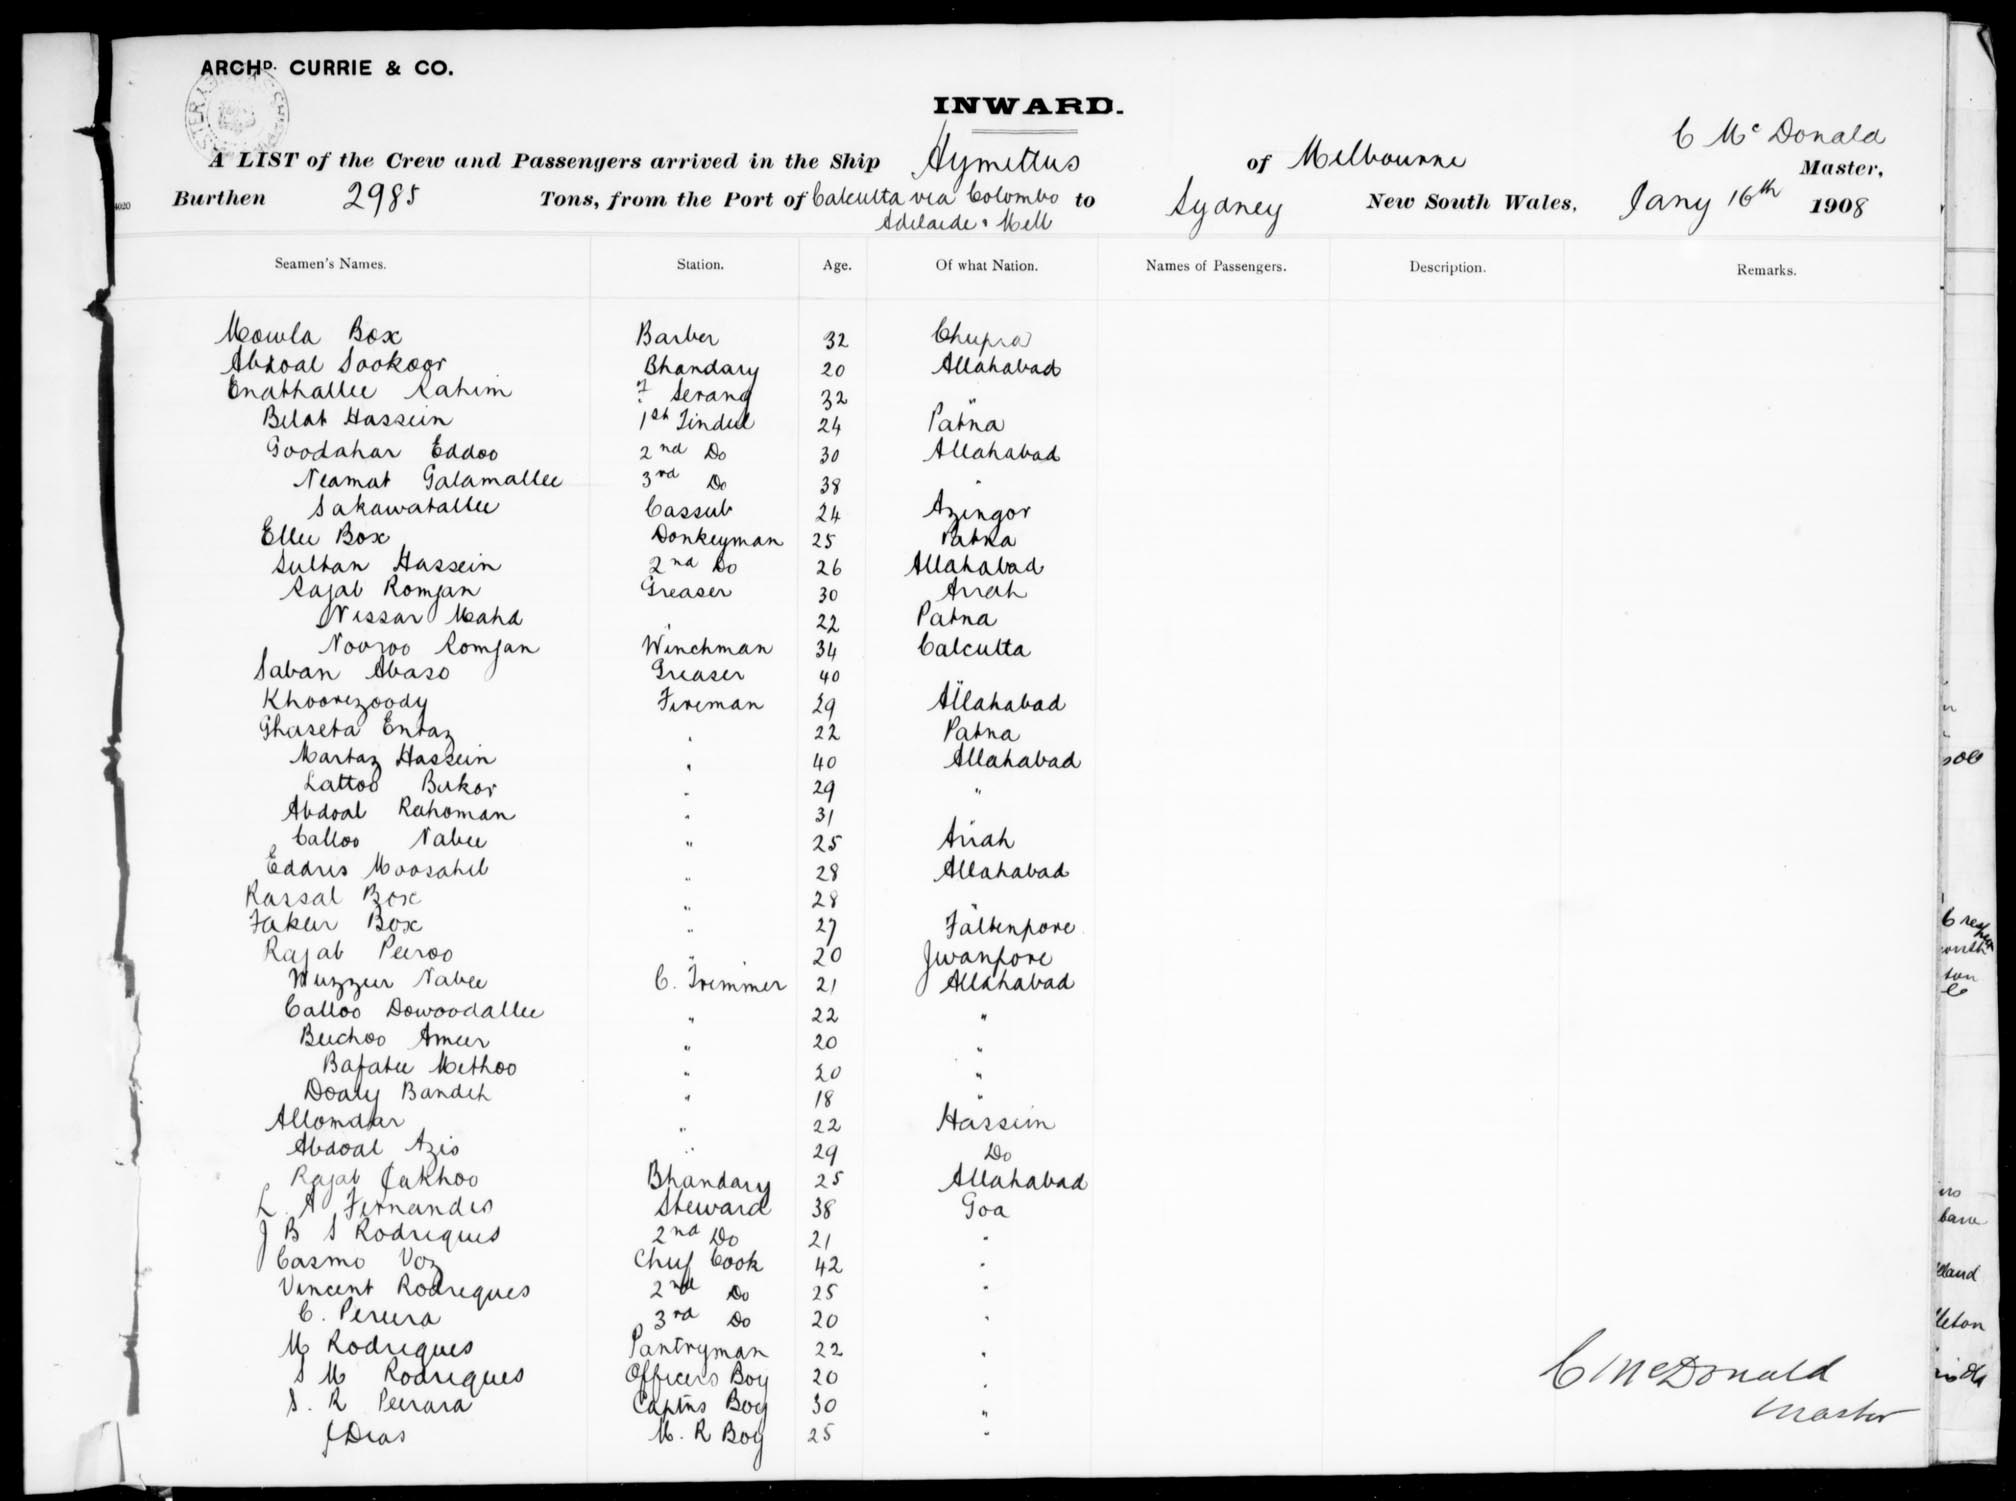 ARCHD. CURRIE & CO.
INWARD.
C McDonald
A LIST of the Crew and Passengers arrived in the Ship Hymettus of Melbourne Master,
4020 Burthen 2985 Tons, from the Port of Calcutta via Colombo to Sydney New South Wales, Jany 16th 1908
Adelaide & Melb
Seamen's Names. Station. Age. Of what Nation. Names of Passengers. Description. Remarks.
Mowla Box Barber 32 Chupra
Abdoal Sookoor Bhandary 20 Allahabad
Enathallee Rahim F Serang 32 "
Belat Hassein 1st Tindel 24 Patna
Goodahar Eddoo 2nd Do 30 Allahabad
Neamat Galamallee 3rd Do 38 "
Sakawatallee Cassub 24 Azingor
Ellee Box Donkeyman 25 Patna
Sultan Hassein 2nd Do 26 Allahabad
Rajab Romjan Greaser 30 Arrah
Nissar Mahd " 22 Patna
Nooroo Romjan Winchman 34 Calcutta
Saban Abaso Greaser 40 "
Khoorezoody Fireman 29 Allahabad
Ghaseta Entaz " 22 Patna
Martaz Hassein " 40 Allahabad
Lattoo Bukor " 29 "
Abdoal Rahoman " 31 "
Calloo Nabee " 25 Arrah
Eddris Moosahib " 28 Allahabad
Rassal Box " 28 "
Fakeer Box " 27 Faltenpore
Rajab Peeroo " 20 Jwanpore
Wuzzur Nabee C. Trimmer 21 Allahabad
Calloo Dowoodallee " 22 "
Beechoo Ameer " 20 "
Bafatee Methoo " 20 "
Doaly Bandeh " 18 "
Allomdar " 22 Hassein
Abdoal Azis " 29 Do
Rajab Jakhoo Bhandary 25 Allahabad
L. A Fernandes Steward 38 Goa
J B S Rodrigues 2nd Do 21 "
Casmo Voz Chief Cook 42 "
Vincent Rodrigues 2nd Do 25 "
C. Pereira 3rd Do 20 "
M Rodrigues Pantryman 22 "
S M Rodrigues Officers Boy 20 "
S. R Peerara Captns Boy 30 "
J Dias M. R Boy 25 "
C McDonald
Master